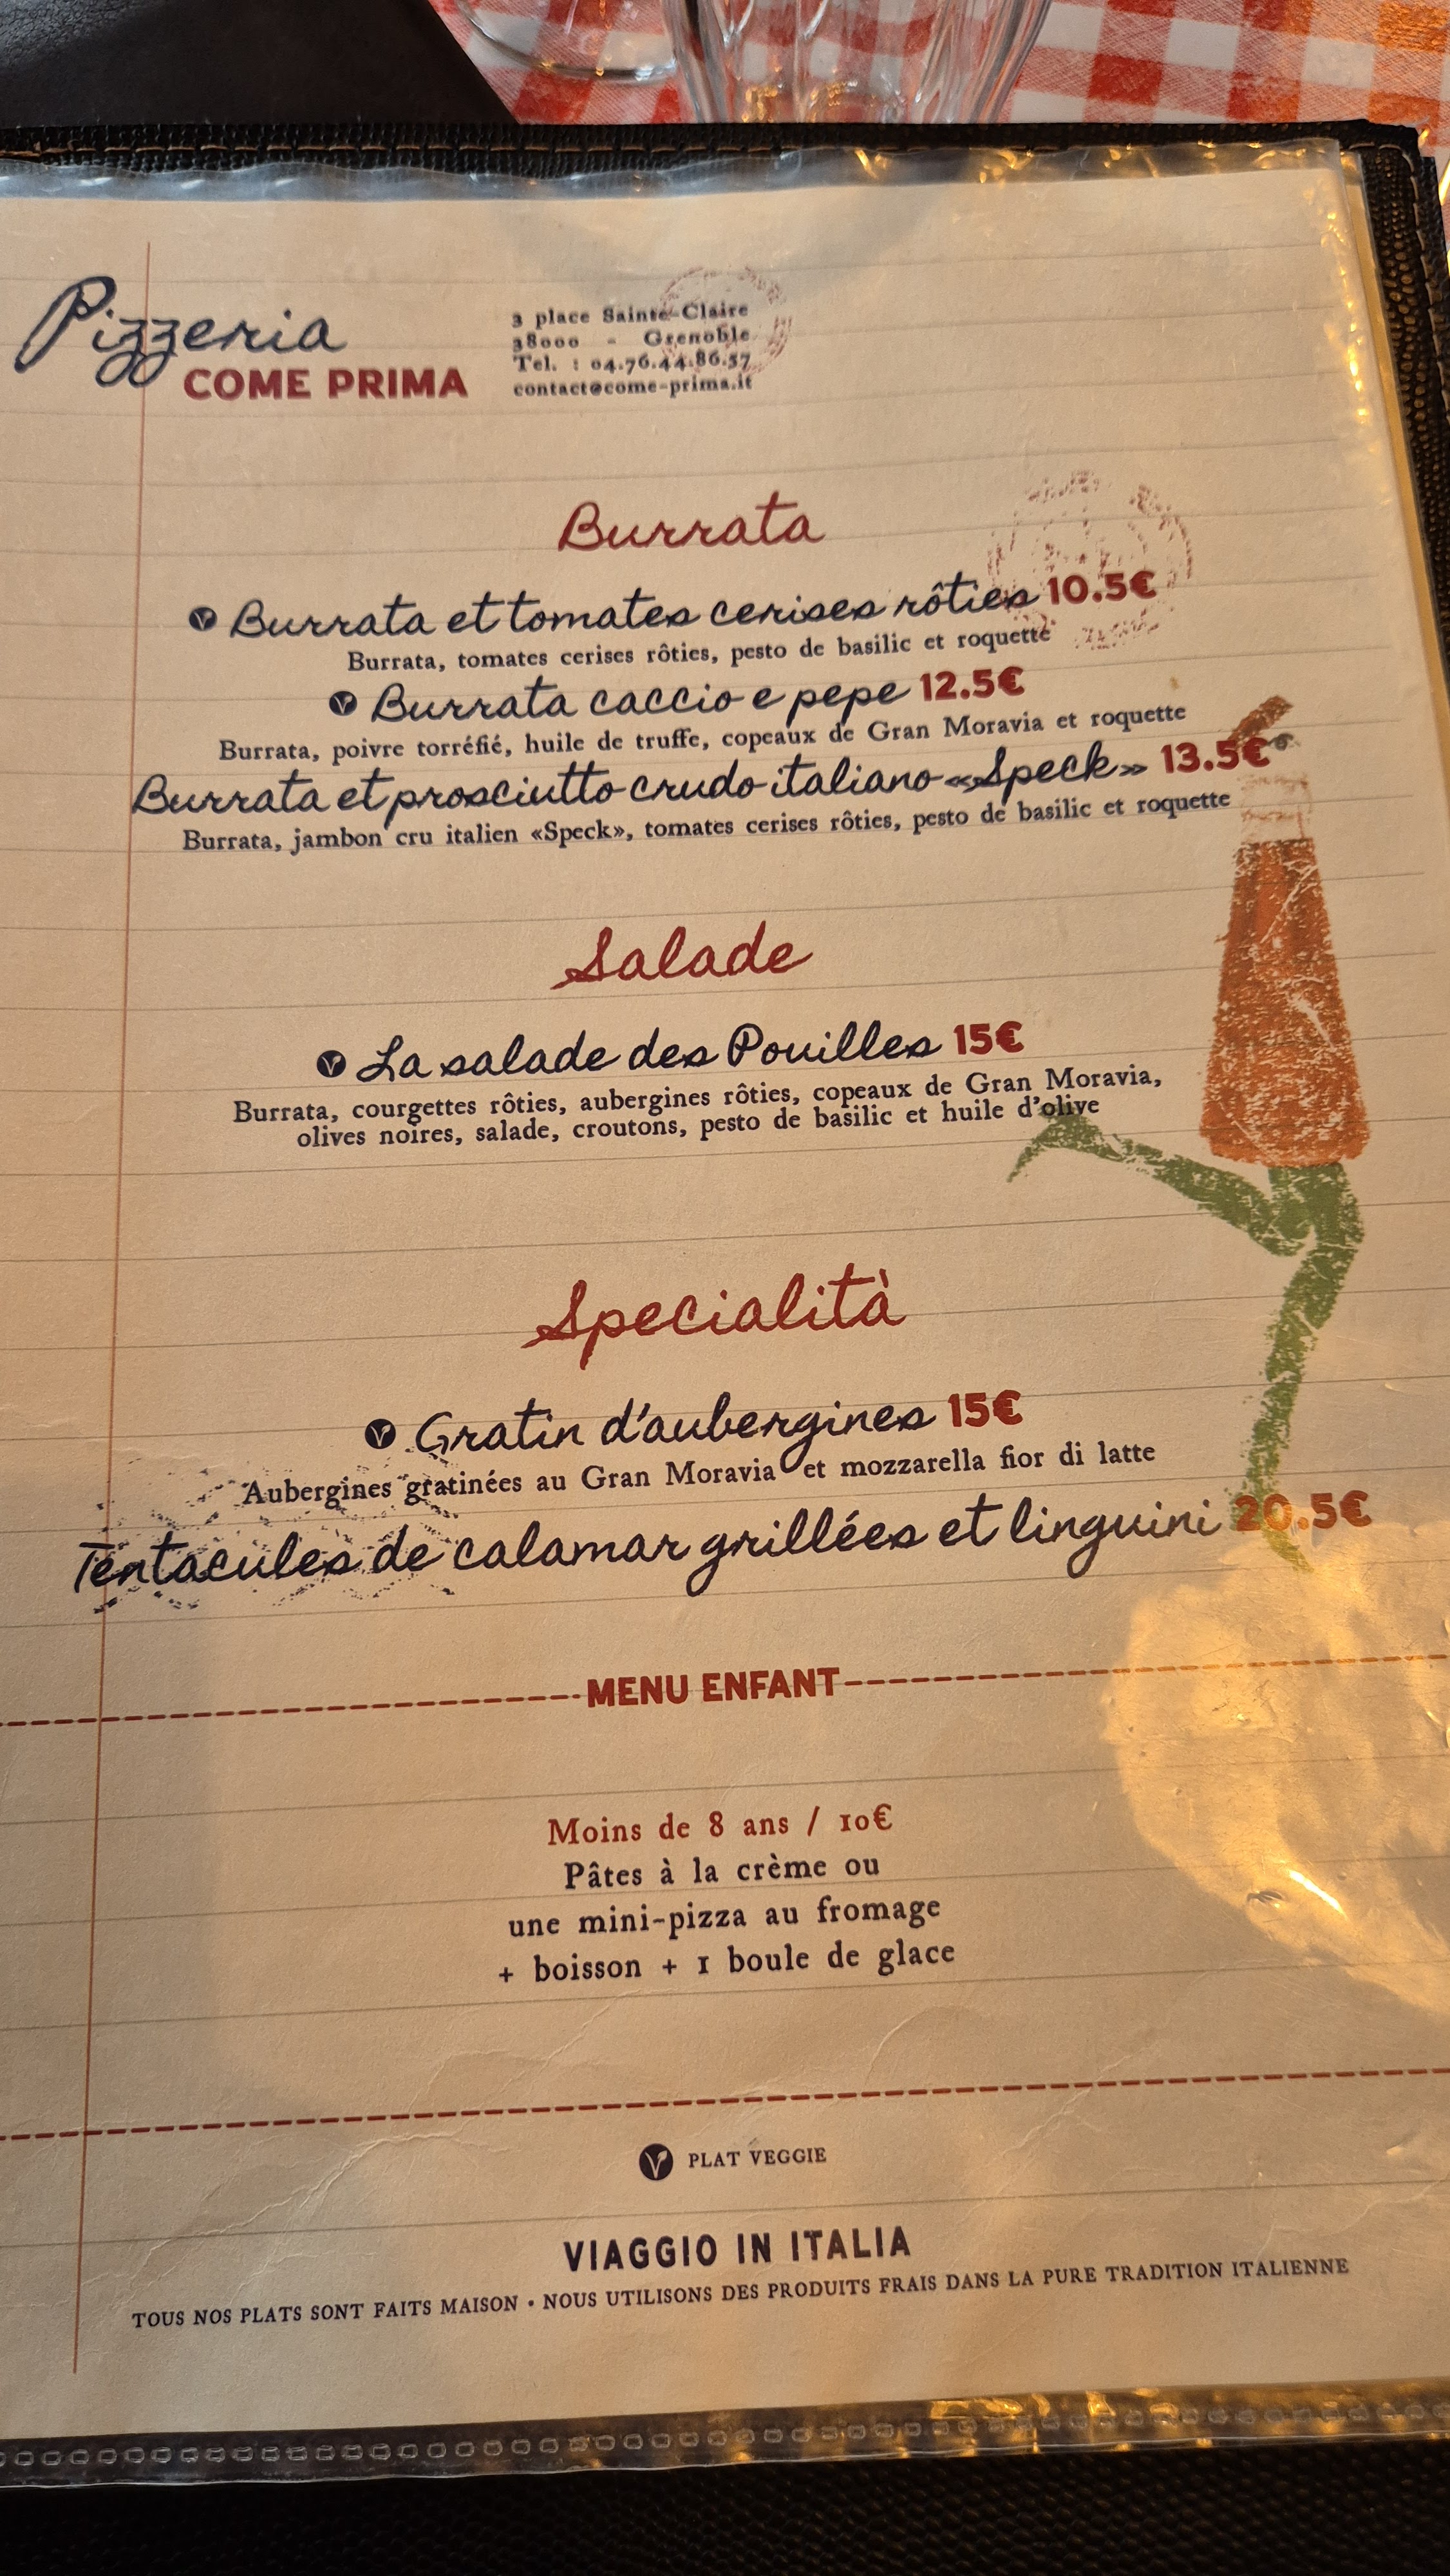 Pizzeria
COME PRIMA
3 place Sainte-Claire
38000 - Grenoble
Tel. : 04.76.44.86.57
contact@come-prima.it
Burrata
Burrata et tomates cerises rôties 10.5€
Burrata, tomates cerises rôties, pesto de basilic et roquette
Burrata caccio e pepe 12.5€
Burrata, poivre torréfié, huile de truffe, copeaux de Gran Moravia et roquette
Burrata et prosciutto crudo italiano «Speck» 13.5€
Burrata, jambon cru italien «Speck», tomates cerises rôties, pesto de basilic et roquette
Salade
La salade des Pouilles 15€
Burrata, courgettes rôties, aubergines rôties, copeaux de Gran Moravia,
olives noires, salade, croutons, pesto de basilic et huile d'olive
Specialità
Gratin d'aubergines 15€
Aubergines gratinées au Gran Moravia et mozzarella fior di latte
Tentacules de calamar grillées et linguini 20.5€
MENU ENFANT
Moins de 8 ans / 10€
Pâtes à la crème ou
une mini-pizza au fromage
+ boisson + 1 boule de glace
V PLAT VEGGIE
VIAGGIO IN ITALIA
TOUS NOS PLATS SONT FAITS MAISON • NOUS UTILISONS DES PRODUITS FRAIS DANS LA PURE TRADITION ITALIENNE